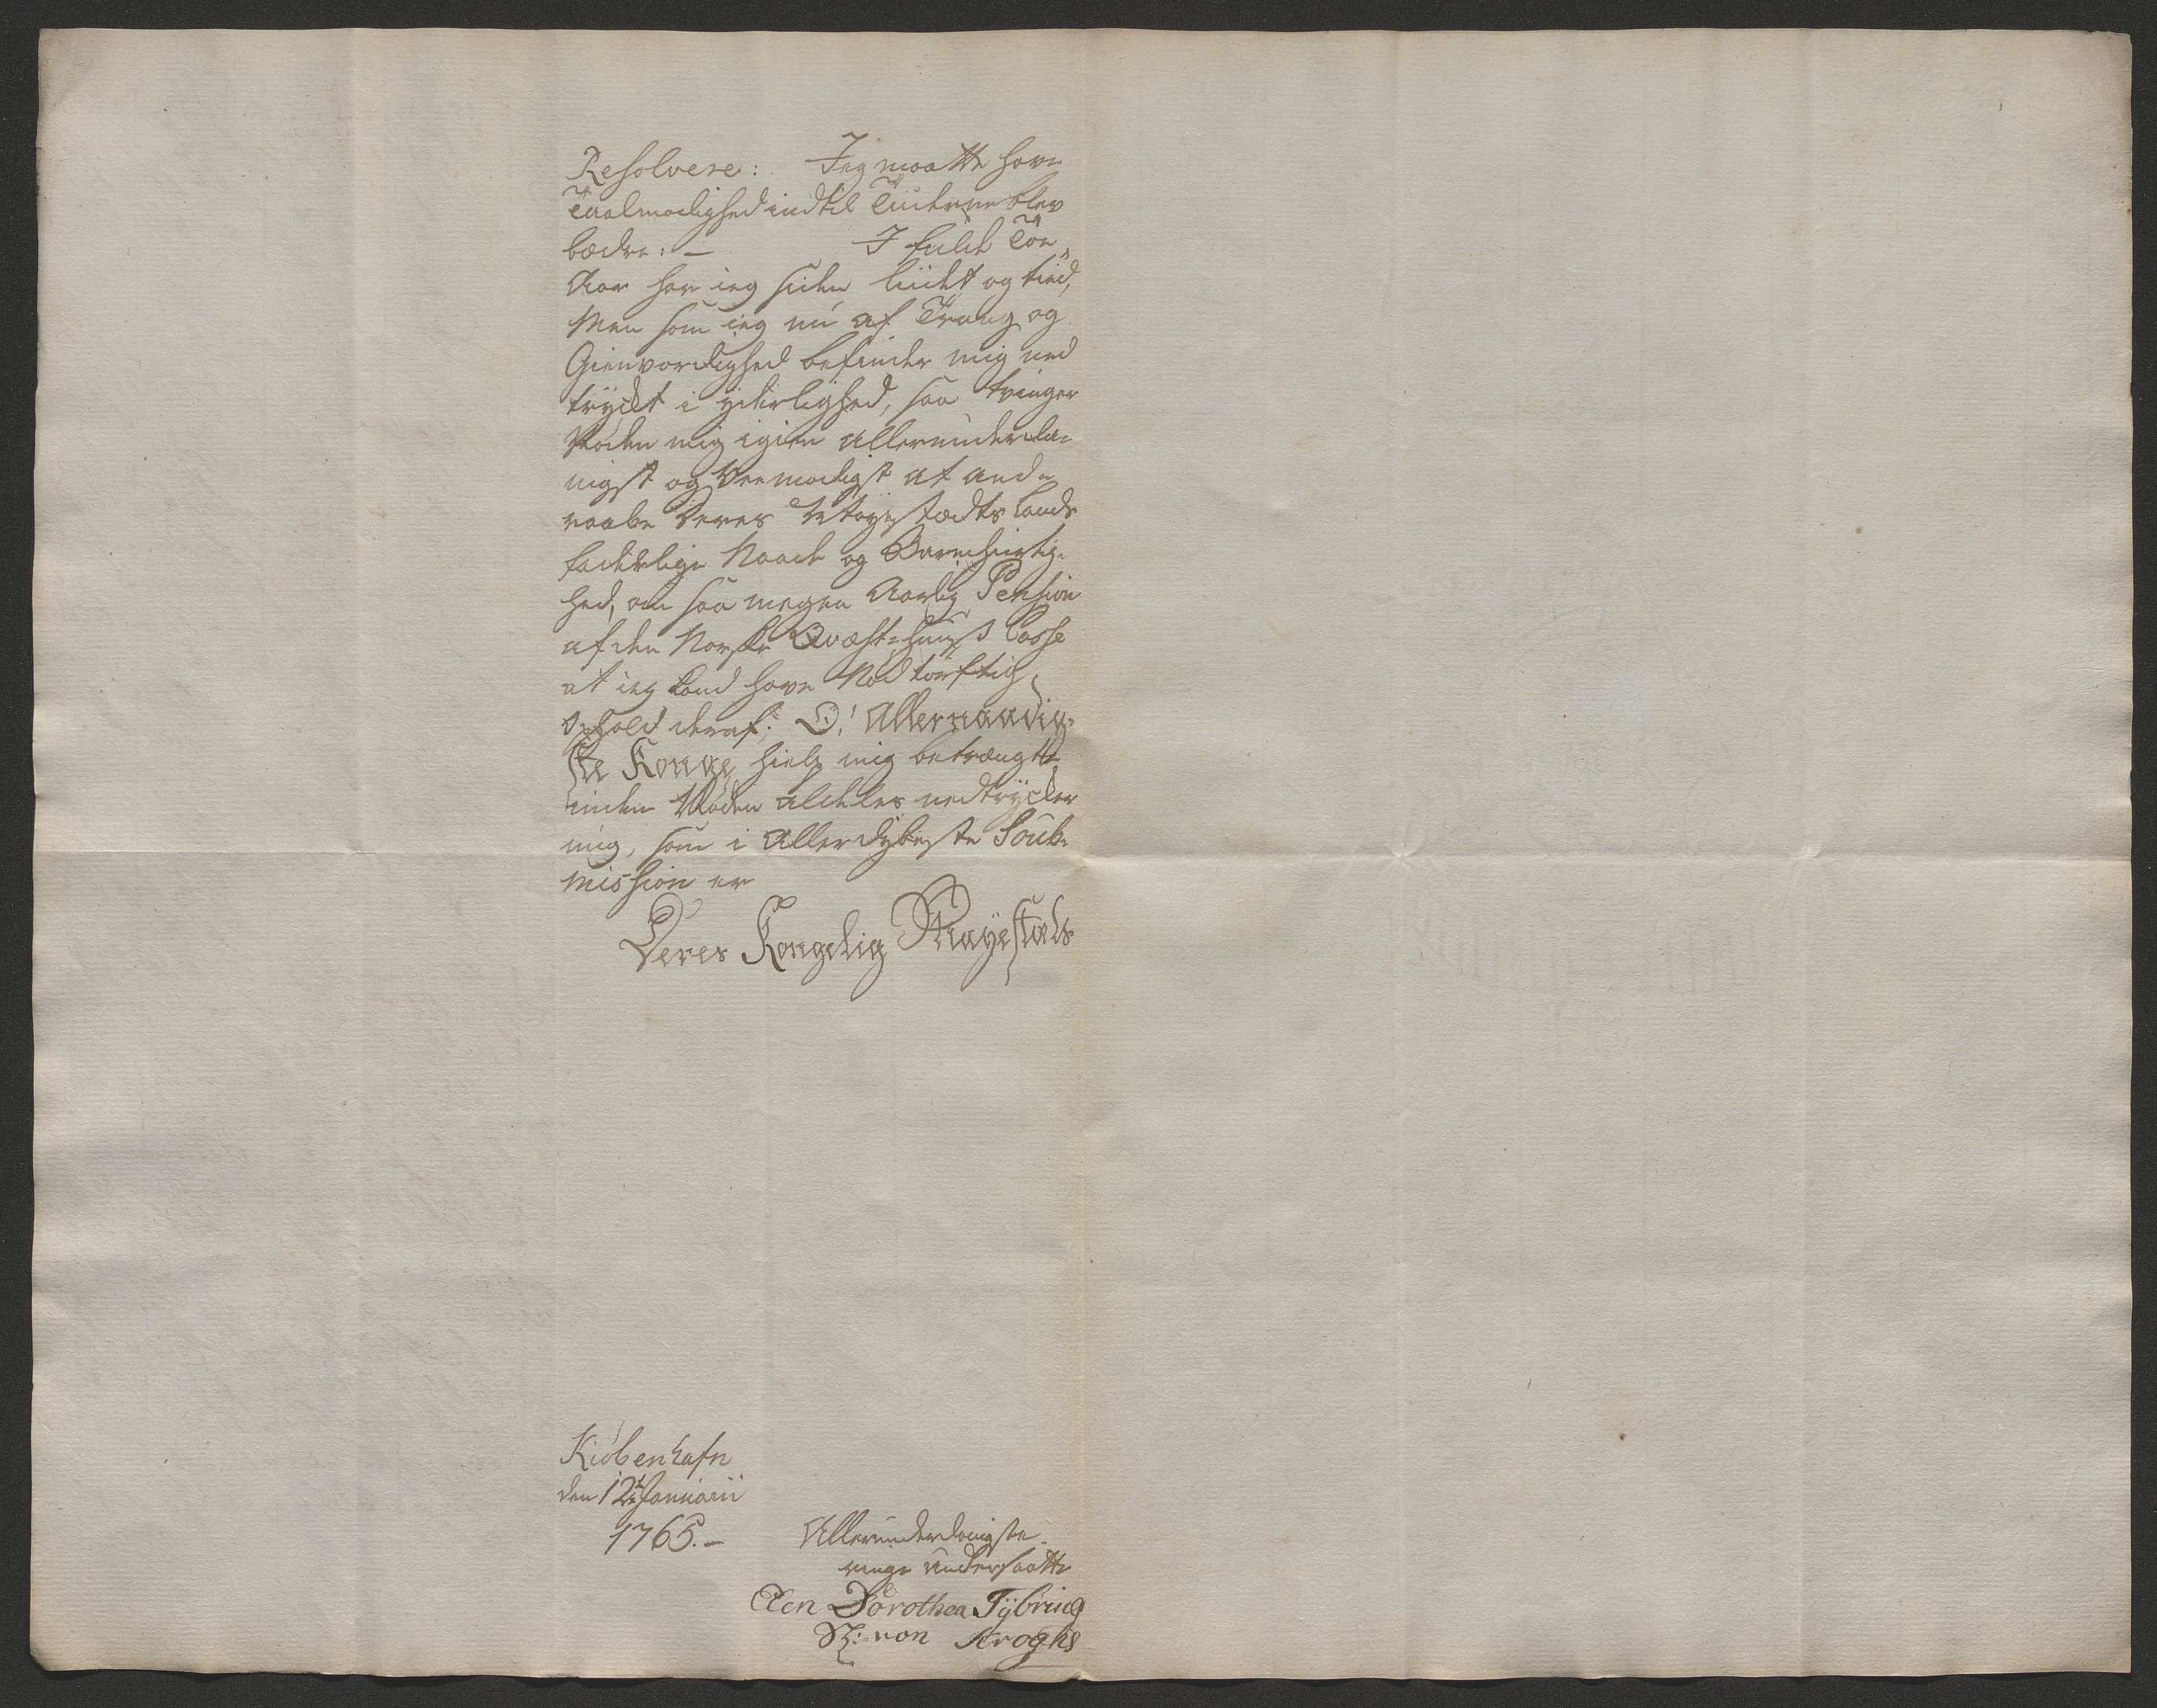 Resolvere: Jeg maatte have
Taalmodighed indtil Tiiderne blev
bædre: — I fulde Toe
Aar har ieg siden liidt og tied,
Men som ieg nu af Trang og
Gienvordighed befinder mig ned
tryckt i yderlighed, saa tvinger
Nøden mig igien allerunderda-
nigst og Veemodigst at and-
raabe Deres Mayestædts Lands
faderlige Naade og Barmhiertig-
hed, om saa megen Aarlig Pension
af den Norske Qvæst-huus Casse
at ieg kand have Nødtørftig
Ophold deraf; O! Allernaadig-
ste Konge hielp mig betrængte
inden Nøden aldeles nedtrycker
mig, som i Allerdybeste Soub-
mission er
Deres Kongelig Mayestæds
Kiøbenhafn
den 12te Januarii
1765.—
Allerunderdanigste
ringe undersaatte
Elen Dorothea Tÿbring
Sl: von Kroghs